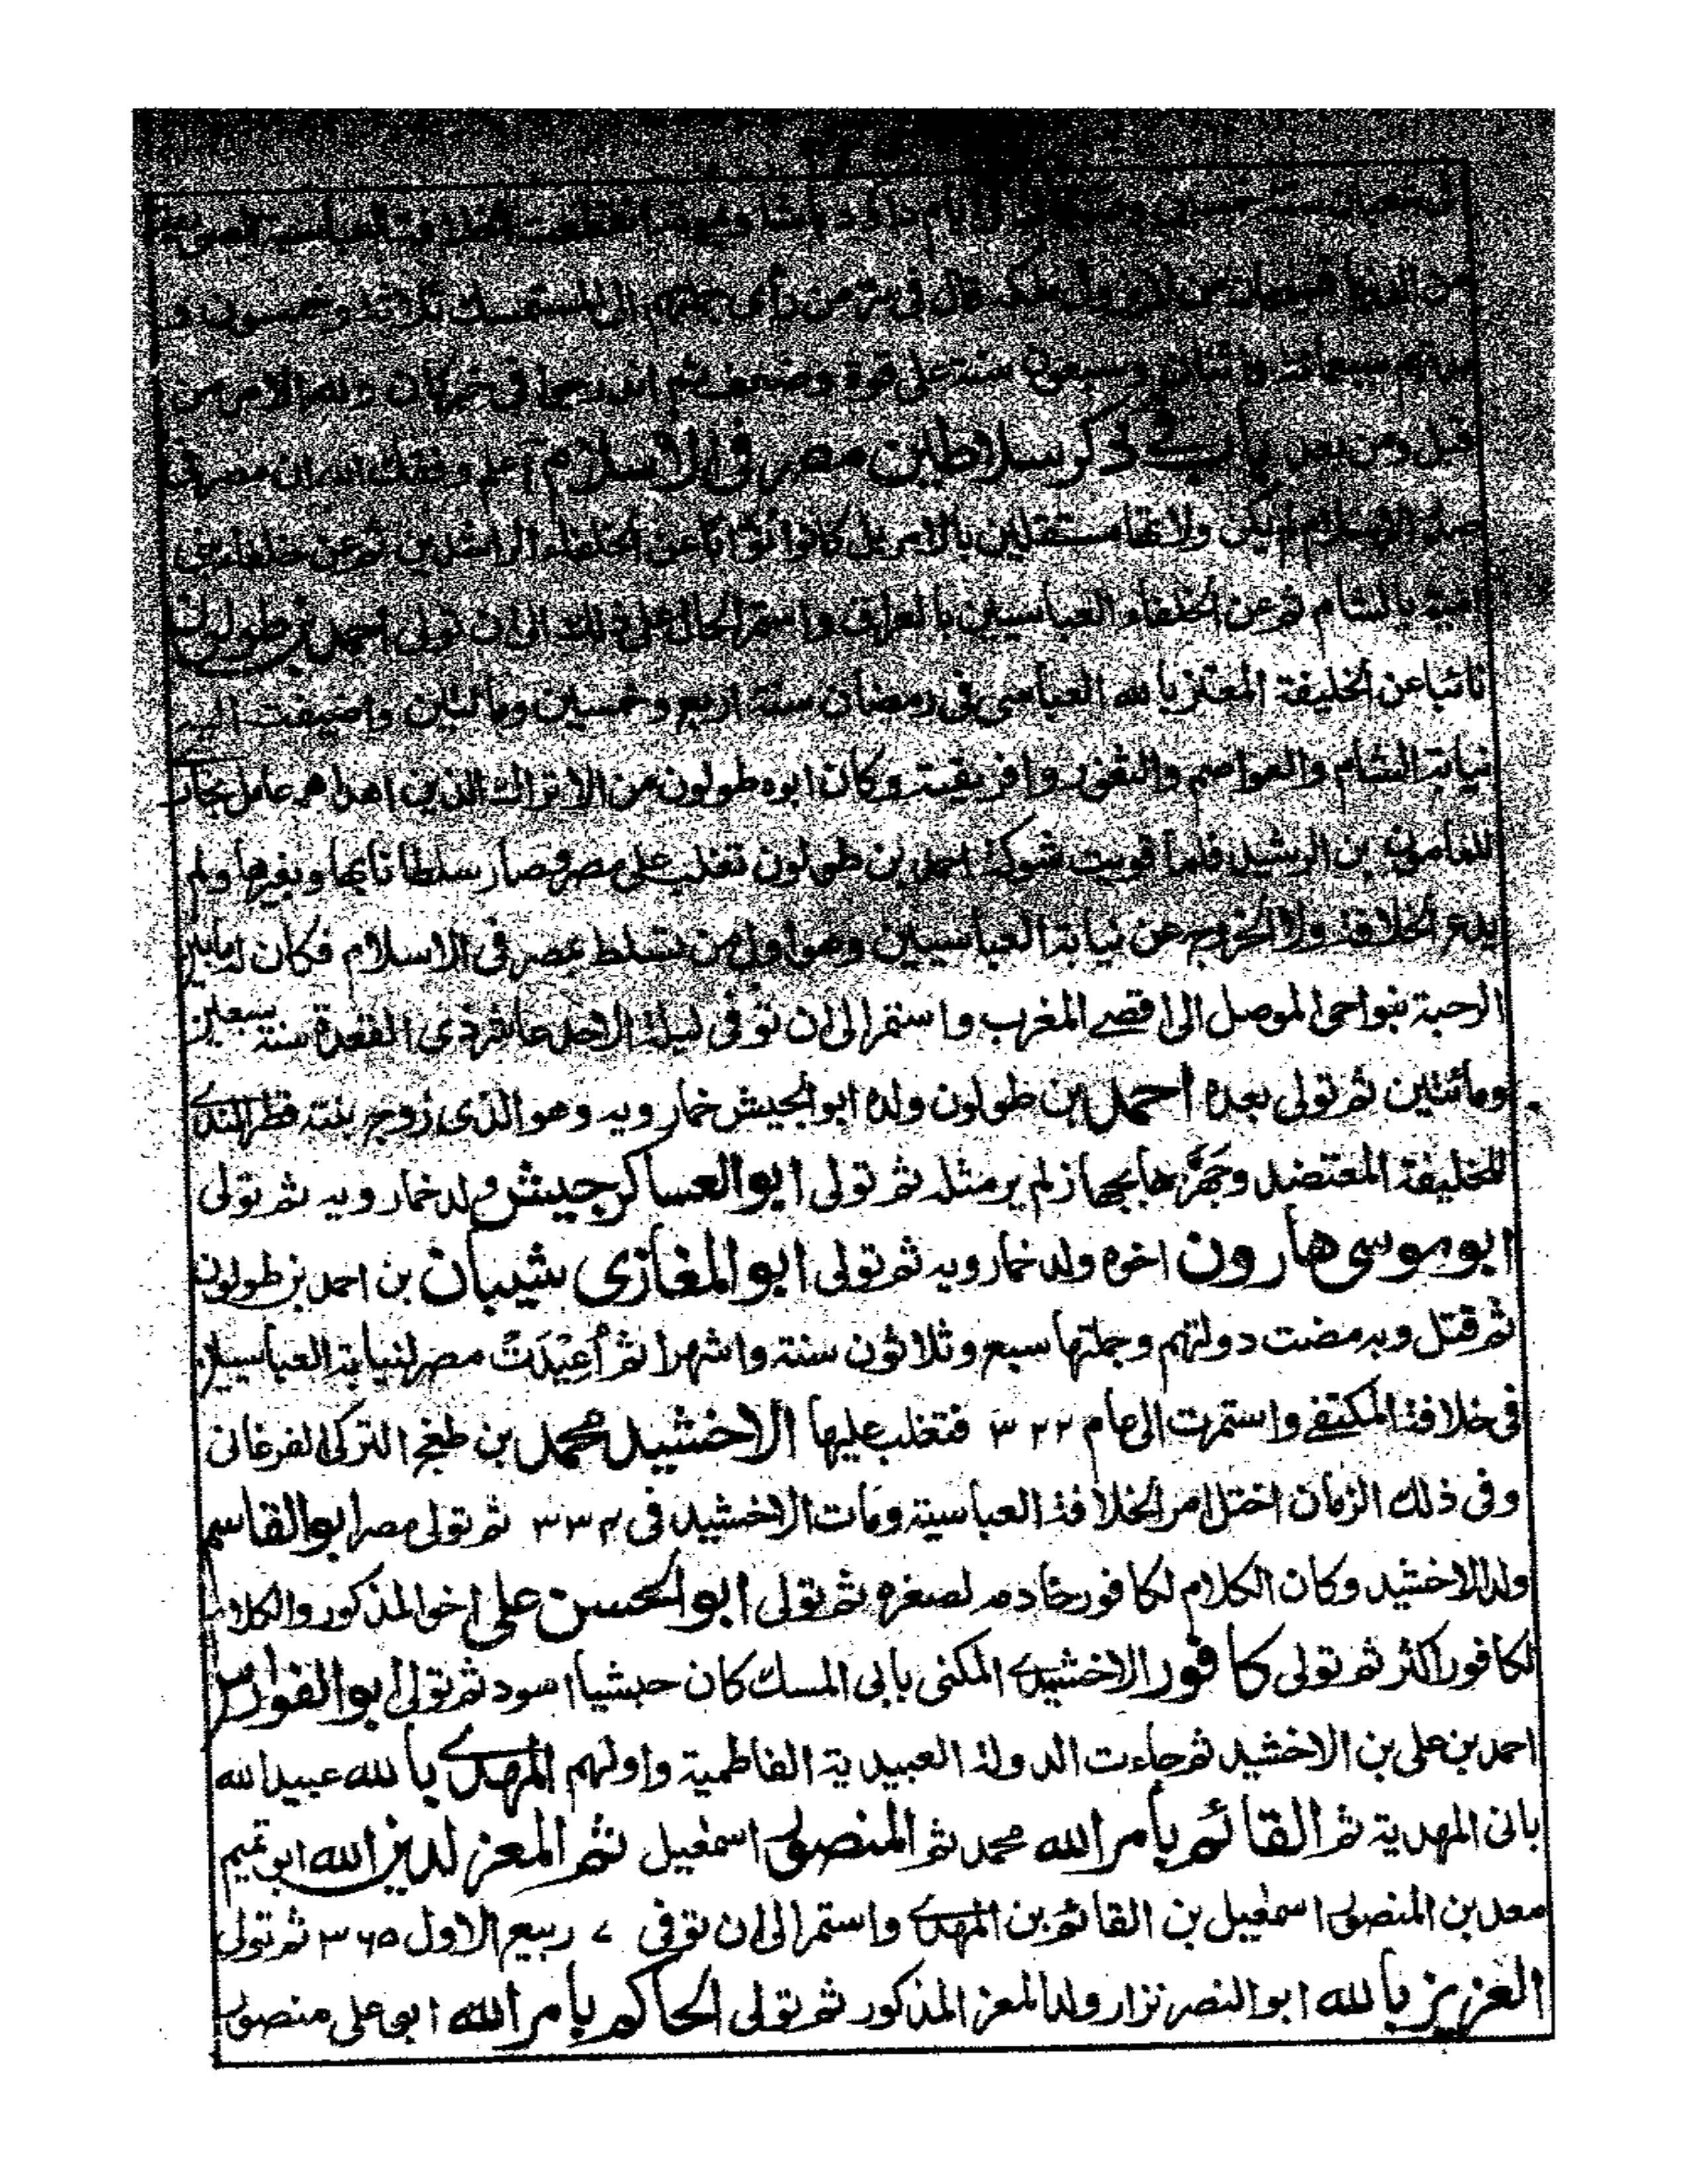 حسين الى ايام داود باشا انقطعت الخلافة العباسية
من الدنيا قال في من رأى الى المستمسك ثلاثة وخمسون
سبعمائة وسبعون سنة على قوة وضعف ثم في خبر كان ولله الامر من
قبل ومن بعد باب في ذكر سلاطين مصر في الاسلام اعلم وفقك الله ان مصر في
صدر الاسلام لم يكن ولاتها مستقلين بالامر بل كانوا نوابا عن الخلفاء الراشدين ثم عن خلفاء بني
امية بالشام ثم عن الخلفاء العباسيين بالعراق واستمر الحال على ذلك الى ان تولى احمد بن طولون
نائبا عن الخليفة المعتز بالله العباسي في رمضان سنة اربع وخمسين ومائتين واضيفت اليه
نيابة الشام والعواصم والثغور وافريقية وكان ابوه طولون من الاتراك الذين اهداهم عامل بخارى
للمامون بن الرشيد فلما قويت شوكة احمد بن طولون تغلب على مصر فصار سلطانا بها وبغيرها ولم
يدع الخلافة ولا الخروج عن نيابة العباسيين وهو اول من تسلط بمصر في الاسلام فكان له ما بين
الرحبة بنواحى الموصل الى اقصى المغرب واستمر الى ان توفى ليلة الاحد عاشر ذى القعدة سنة سبعين
ومائتين ثم تولى بعده احمد بن طولون ولده ابو الجيش خمارويه وهو الذى زوج بنته قطر الندى
للخليفة المعتضد وجَهَّزها بجهاز لم ير مثله ثم تولى ابو العساكر جيش ولد خمارويه ثم تولى
ابو موسى هارون اخوه ولد خمارويه ثم تولى ابو المغازى شيبان بن احمد بن طولون
ثم قتل وبه مضت دولتهم وجملتها سبع وثلاثون سنة واشهرا ثم أُعِيْدَتْ مصر لنيابة العباسيين
فى خلافة المكتفى واستمرت الى عام ٣٢٢ فتغلب عليها الاخشيد محمد بن طغج التركى الفرغانى
وفى ذلك الزمان اختل امر الخلافة العباسية ومات الاخشيد فى ٣٣٤ ثم تولى مصر ابو القاسم
ولد الاخشيد وكان الكلام لكافور خادمه لصغره ثم تولى ابو الحسن على اخو المذكور والكلام
لكافور اكثر ثم تولى كافور الاخشيدى المكنى بابى المسك كان حبشيا اسود ثم تولى ابو الفوارس
احمد بن على بن الاخشيد ثم جاءت الدولة العبيدية الفاطمية واولهم المهدى بالله عبيد الله
بانى المهدية ثم القائم بأمر الله محمد ثم المنصور اسمعيل ثم المعز لدين الله ابو تميم
معد بن المنصور اسمعيل بن القائم بن المهدى واستمر الى ان توفى ٧ ربيع الاول ٣٦٥ ثم تولى
العزيز بالله ابو النصر نزار ولد المعز المذكور ثم تولى الحاكم بامر الله ابو على منصور